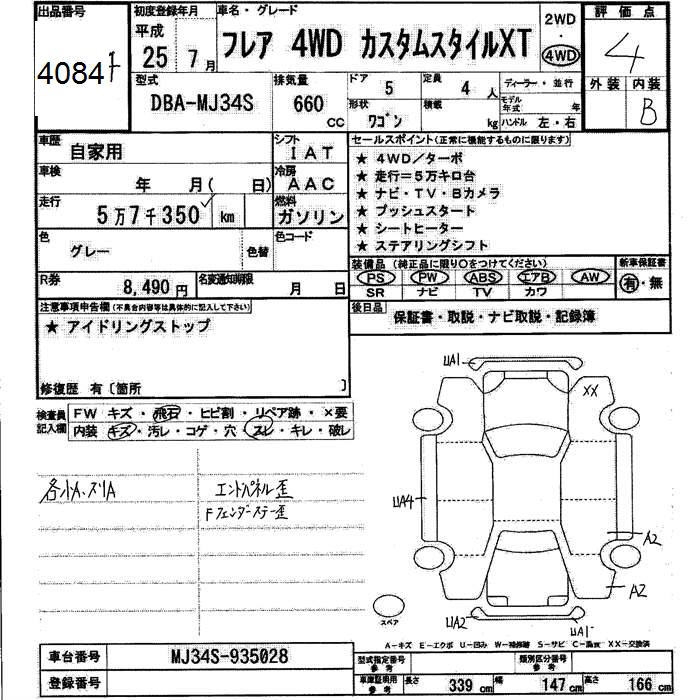 出品番号
4084
初度登録年月
平成
25 7月
車名・グレード
フレア 4WD カスタムスタイルXT
2WD
・
4WD
評価点
4
外装 内装
B
型式
DBA-MJ34S
排気量
660
CC
ドア
5
定員
4 人
ディーラー・並行
形状
ワゴン
積載
kg
モデル年式 年
ハンドル 左・右
車歴
自家用
シフト
IAT
車検
年 月( 日)
冷房
AAC
走行
5万7千350 km
燃料
ガソリン
色
グレー
色替
色コード
R券
8,490円
名変通知期限
月 日
セールスポイント(正常に機能するものに限ります)
★ 4WD/ターボ
★ 走行=5万キロ台
★ ナビ・TV・Bカメラ
★ プッシュスタート
★ シートヒーター
★ ステアリングシフト
装備品 (純正品に限り○をつけてください)
PS PW ABS エアB AW
SR ナビ TV カワ
新車保証書
有・無
後日品
保証書・取説・ナビ取説・記録簿
注意事項申告欄(不具合内容等は具体的に記入して下さい)
★ アイドリングストップ
修復歴 有〔箇所 〕
検査員記入欄
FW キズ・飛石・ヒビ割・リペア跡・×要
内装 キズ・汚レ・コゲ・穴・スレ・キレ・破レ
各小A.スリA
エンドパネル歪
Fフェンダーステー歪
UA1
XX
UA4
A2
A2
UA2
UA1
スペア
A-キズ E-エクボ U-凹み W-補修跡 S-サビ C-腐食 XX-交換済
車台番号
MJ34S-935028
登録番号
型式指定番号
参考
類別区分番号
参考
車庫証明用
参考
長さ 339 cm 幅 147 cm 高さ 166 cm